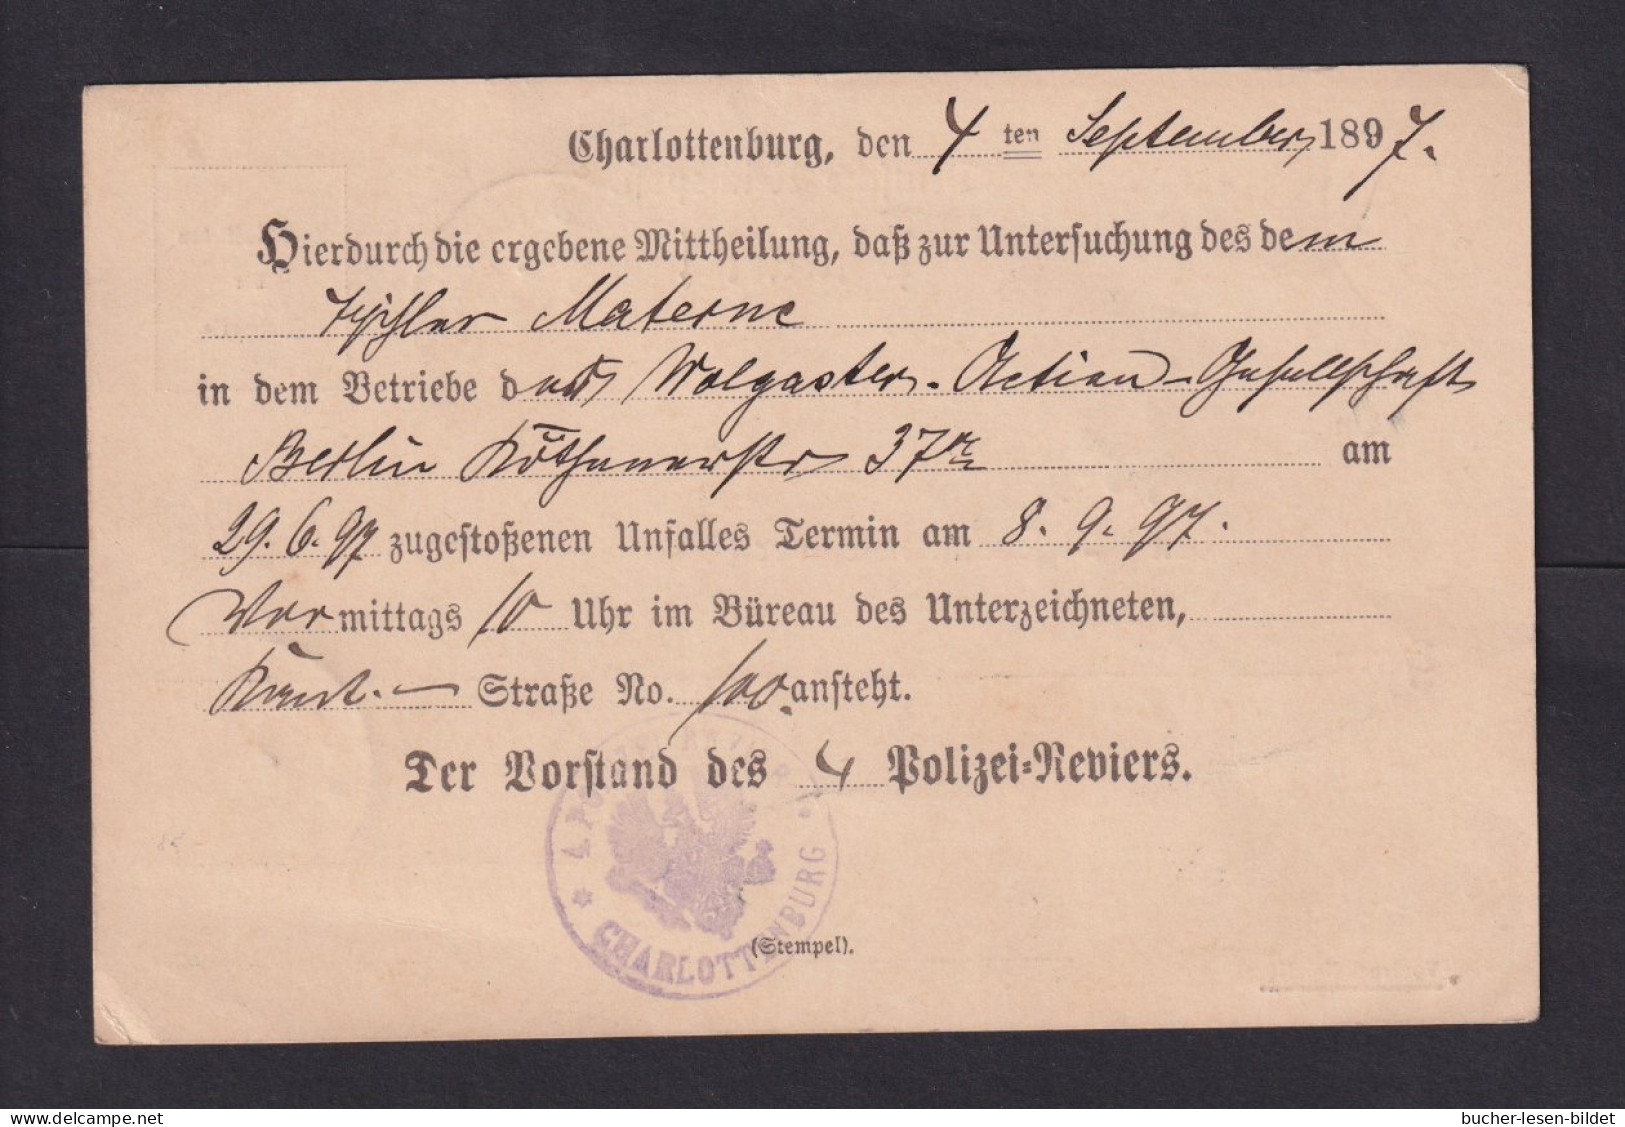 Charlottenburg, den 4 ten September 1897.
Hierdurch die ergebene Mittheilung, daß zur Untersuchung des dem
Tischler Materne
in dem Betriebe der Wolgaster-Actien-Gesellschaft
Berlin Köthenerstr 37 am
29.6.97 zugestoßenen Unfalles Termin am 8.9.97.
Vormittags 10 Uhr im Büreau des Unterzeichneten,
Kant.- Straße No. 100 ansteht.
Der Vorstand des 4 Polizei-Reviers.
CHARLOTTENBURG
(Stempel).
delcampe.net
bucher-lesen-bildet